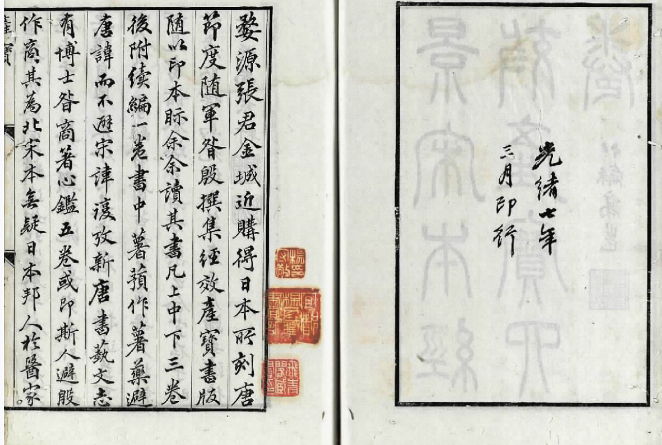 光緒七年
三月印行
婺源張君金城近購得日本所刻唐
節度随軍昝殷撰集經效產寶書版
随以印本眎余余讀其書凡上中下三卷
後附續編一卷書中薯蕷作薯藥避
唐諱而不避宋諱復攷新唐書藝文志
有博士昝商著心鑑五卷或即斯人避殷
作商其為北宋本無疑日本邦人於醫家